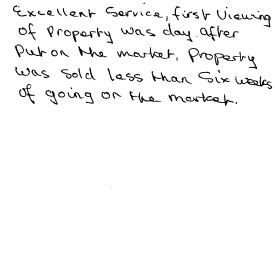 Excellent Service, first viewing
of Property was day after
Put on the market. Property
was sold less than six weeks
of going on the market.